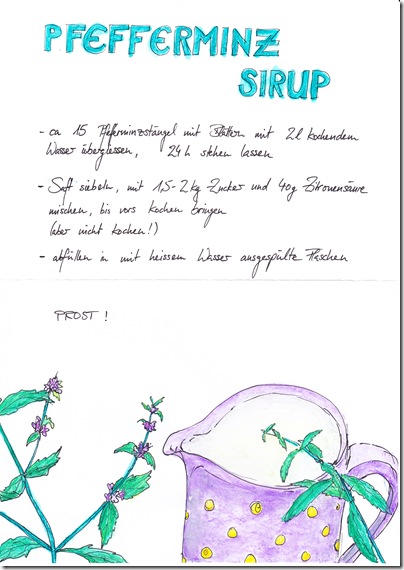 PFEFFERMINZ
SIRUP
- ca 15 Pfefferminzstängel mit Blätter mit 2l kochendem
Wasser übergiessen, 24h stehen lassen
- Saft siebeln, mit 1,5-2kg Zucker und 40g Zitronensäure
mischen, bis vors kochen bringen
(aber nicht kochen!)
- abfüllen in mit heissem Wasser ausgespülte Flaschen
PROST!